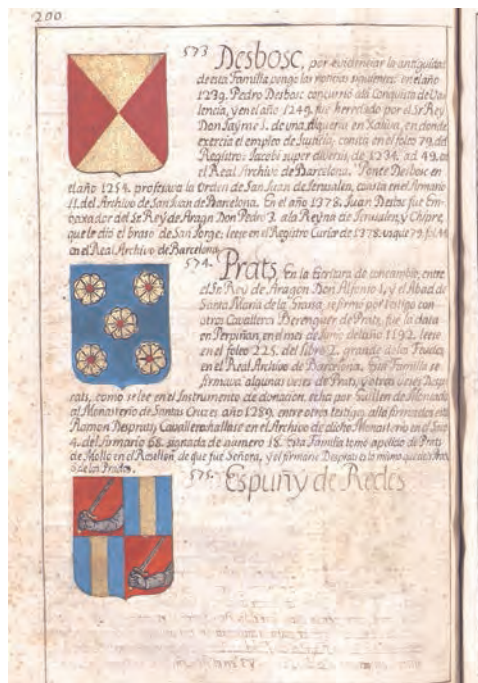 200
573 Desbosc, por evidenciar la antiguidad
de esta Familia, pongo las noticias siguientes: en el año
1239. Pedro Desbosc concurrió ala Conquista de Va-
lencia, y en el año 1249. fue heredado por el Sr Rey
Don Jayme 1. de una Alqueria en Xativa, en donde
exercia el empleo de Justicia; consta en el foleo 79. del
Registro: Jacobi super diversis, de 1234. ad 49. en
el Real Archivo de Barcelona. Ponce Desbosc en
el año 1254. professava la Orden de San Juan de Jerusalen, consta en el Armario
11. del Archivo de San Juan de Barcelona. En el año 1378. Juan Desbosc fue Em-
baxador del Sr Rey de Aragn Don Pedro 3. ala Reyna de Jerusalen, y Chipre,
que le dio el braso de San Jorge; leese en el Registro Curiæ de 1378. usque 79. fol. 44
en el Real Archivo de Barcelona.
574. Prats, En la Escritura de concambio, entre
el Sr Rey de Aragon Don Alfonso 1, y el Abad de
Santa Maria de la Grasa, se firmo por testigo con
otros Cavalleros Berenguer de Prats, fue la data
en Perpiñan, en el mes de Junio del año 1192. leese
en el foleo 225. del libro 2. grande de los Feudos,
en el Real Archivo de Barcelona. Esta Familia se
firmava algunas veses de Prats, y otras veses Desp-
rats, como se lee en el Instrumento de donacion, echa por Guillen de Moncada
al Monasterio de Santas Cruzes, año 1289. entre otros testigos alla firmados esta
Ramon Desprats Cavallero hallase en el Archivo de dicho Monasterio en el Saco
4. del Armario 68. signada de numero 18. Esta Familia tomo apelido de Prats
de Mollo en el Rosellon, de que fue Señora, y el firmarse Desprats es lo mismo que de Prats,
ò de los Prados.
575. Espuñy de Redes